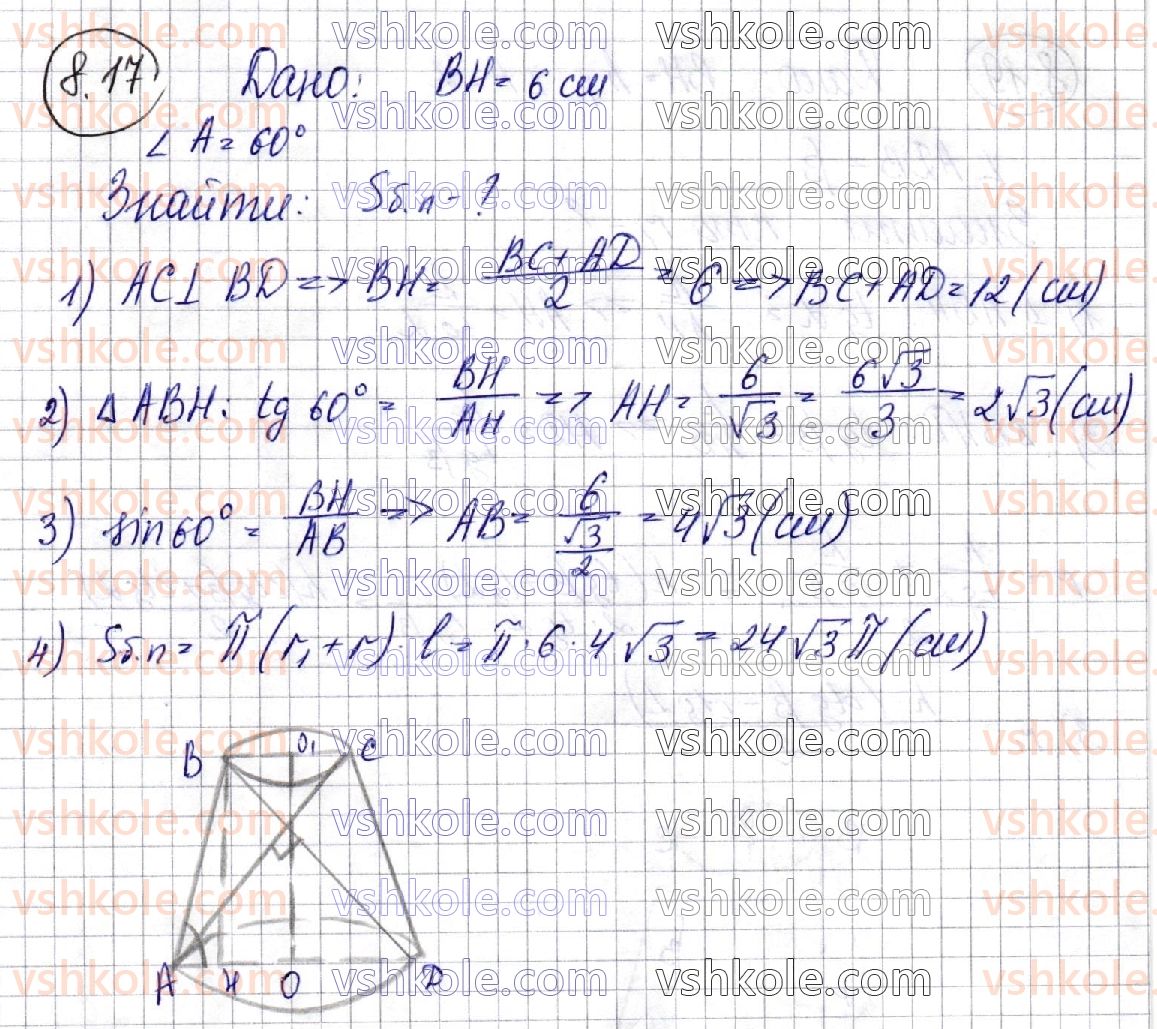 8.17 Дано: BH = 6 см
∠ A = 60°
Знайти: Sб.п - ?
1) AC ⊥ BD => BH = (BC + AD)/2 = 6 => BC + AD = 12 (см)
2) △ ABH: tg 60° = BH/AH => AH = 6/√3 = 6√3/3 = 2√3 (см)
3) sin 60° = BH/AB => AB = 6/(√3/2) = 4√3 (см)
4) Sб.п = π (r₁ + r) · l = π · 6 · 4√3 = 24√3 π (см)
B O₁ C
A H O D
vshkole.com